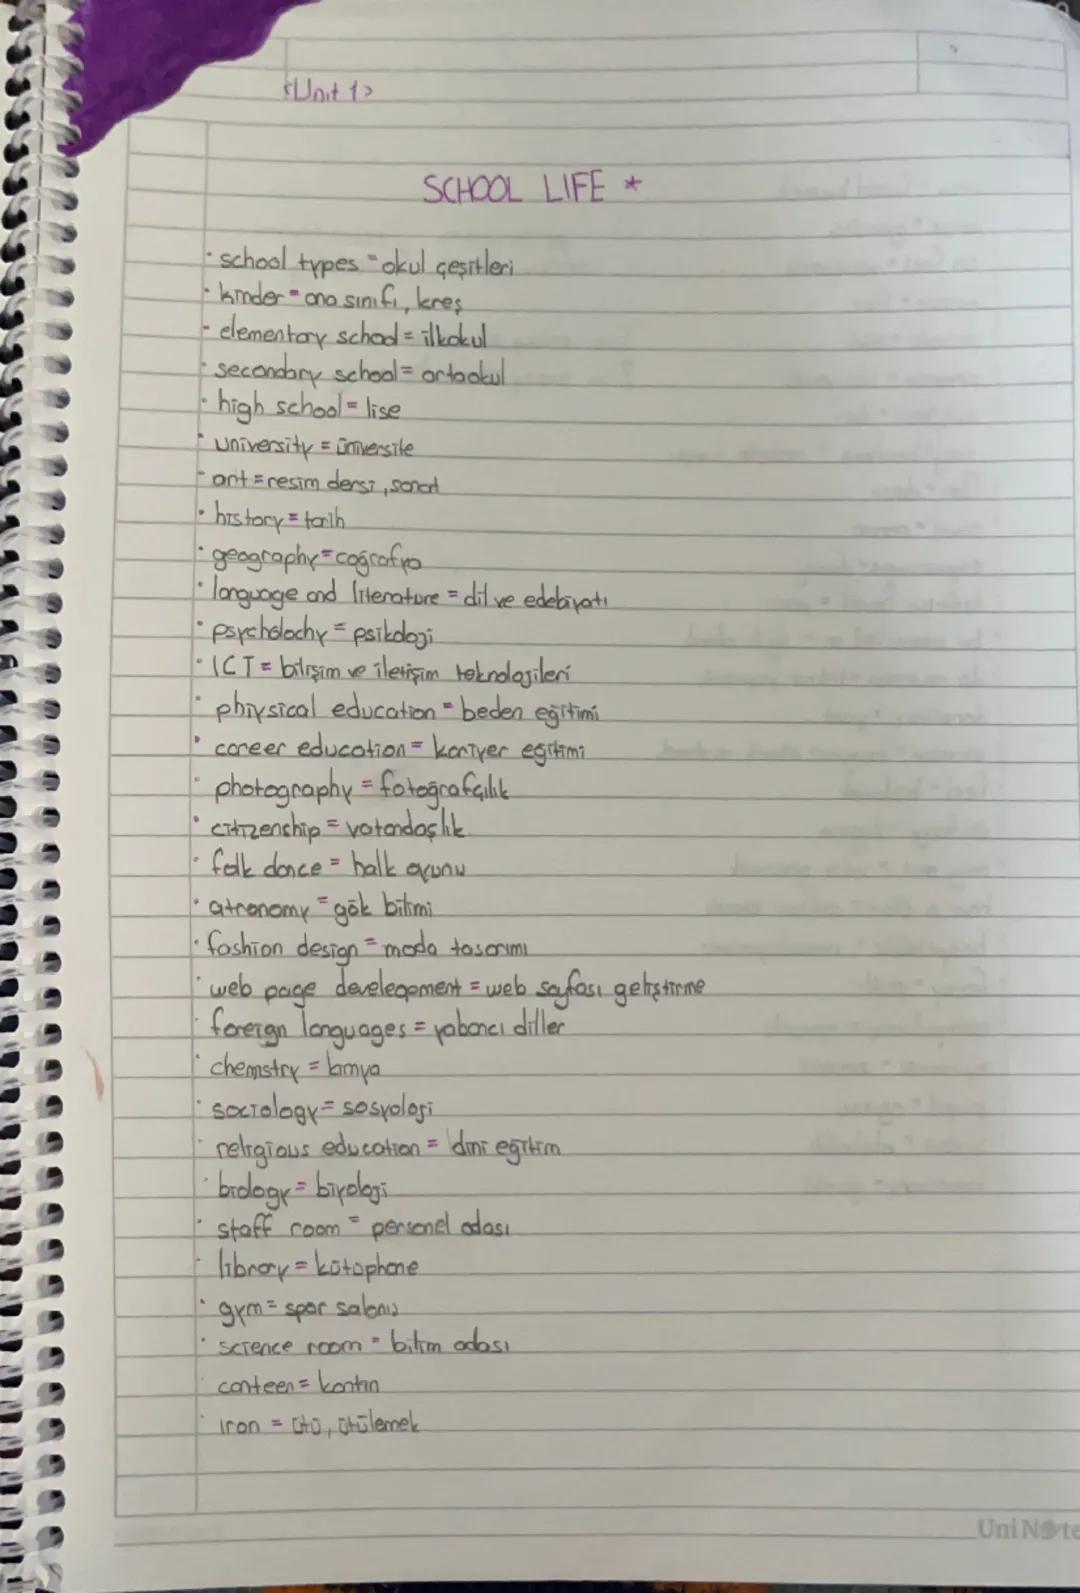 <Unit 1>
SCHOOL LIFE *
· school types = okul çeşitleri
· kinder = ana sınıfı, kreş
- elementary school = ilkokul
· secondary school = ortaokul
· high school = lise
· university = üniversite
- art = resim dersi, sanat
· history = tarih
· geography = coğrafya
· language and literature = dil ve edebiyatı
· psycholochy = psikoloji
· ICT = bilişim ve iletişim teknolojileri
· phiysical education = beden eğitimi
· career education = kariyer eğitimi
· photography = fotoğrafçılık
· citizenship = vatandaşlık
· folk dance = halk oyunu
· atronomy = gök bilimi
· fashion design = moda tasarımı
· web page develeopment = web sayfası geliştirme
· foreign languages = yabancı diller
· chemstry = kimya
· sociology = sosyoloji
· religious education = dini eğitim
· biology = biyoloji
· staff room = personel odası
· library = kütüphane
· gym = spor salonu
· science room = bilim odası
canteen = kantin
· iron = ütü, ütülemek
UniNote